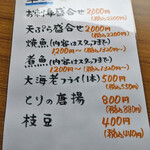 お刺身盛合せ 2000円
(税込2200円)
天ぷら盛合せ 2000円
(税込2200円)
焼魚(内容はスタッフまで)
1200円〜(税込1320円〜)
煮魚(内容はスタッフまで)
1200円〜(税込1320円〜)
大海老フライ(1本)500円
(税込550円)
とりの唐揚 800円
(税込880円)
枝豆 400円
(税込440円)